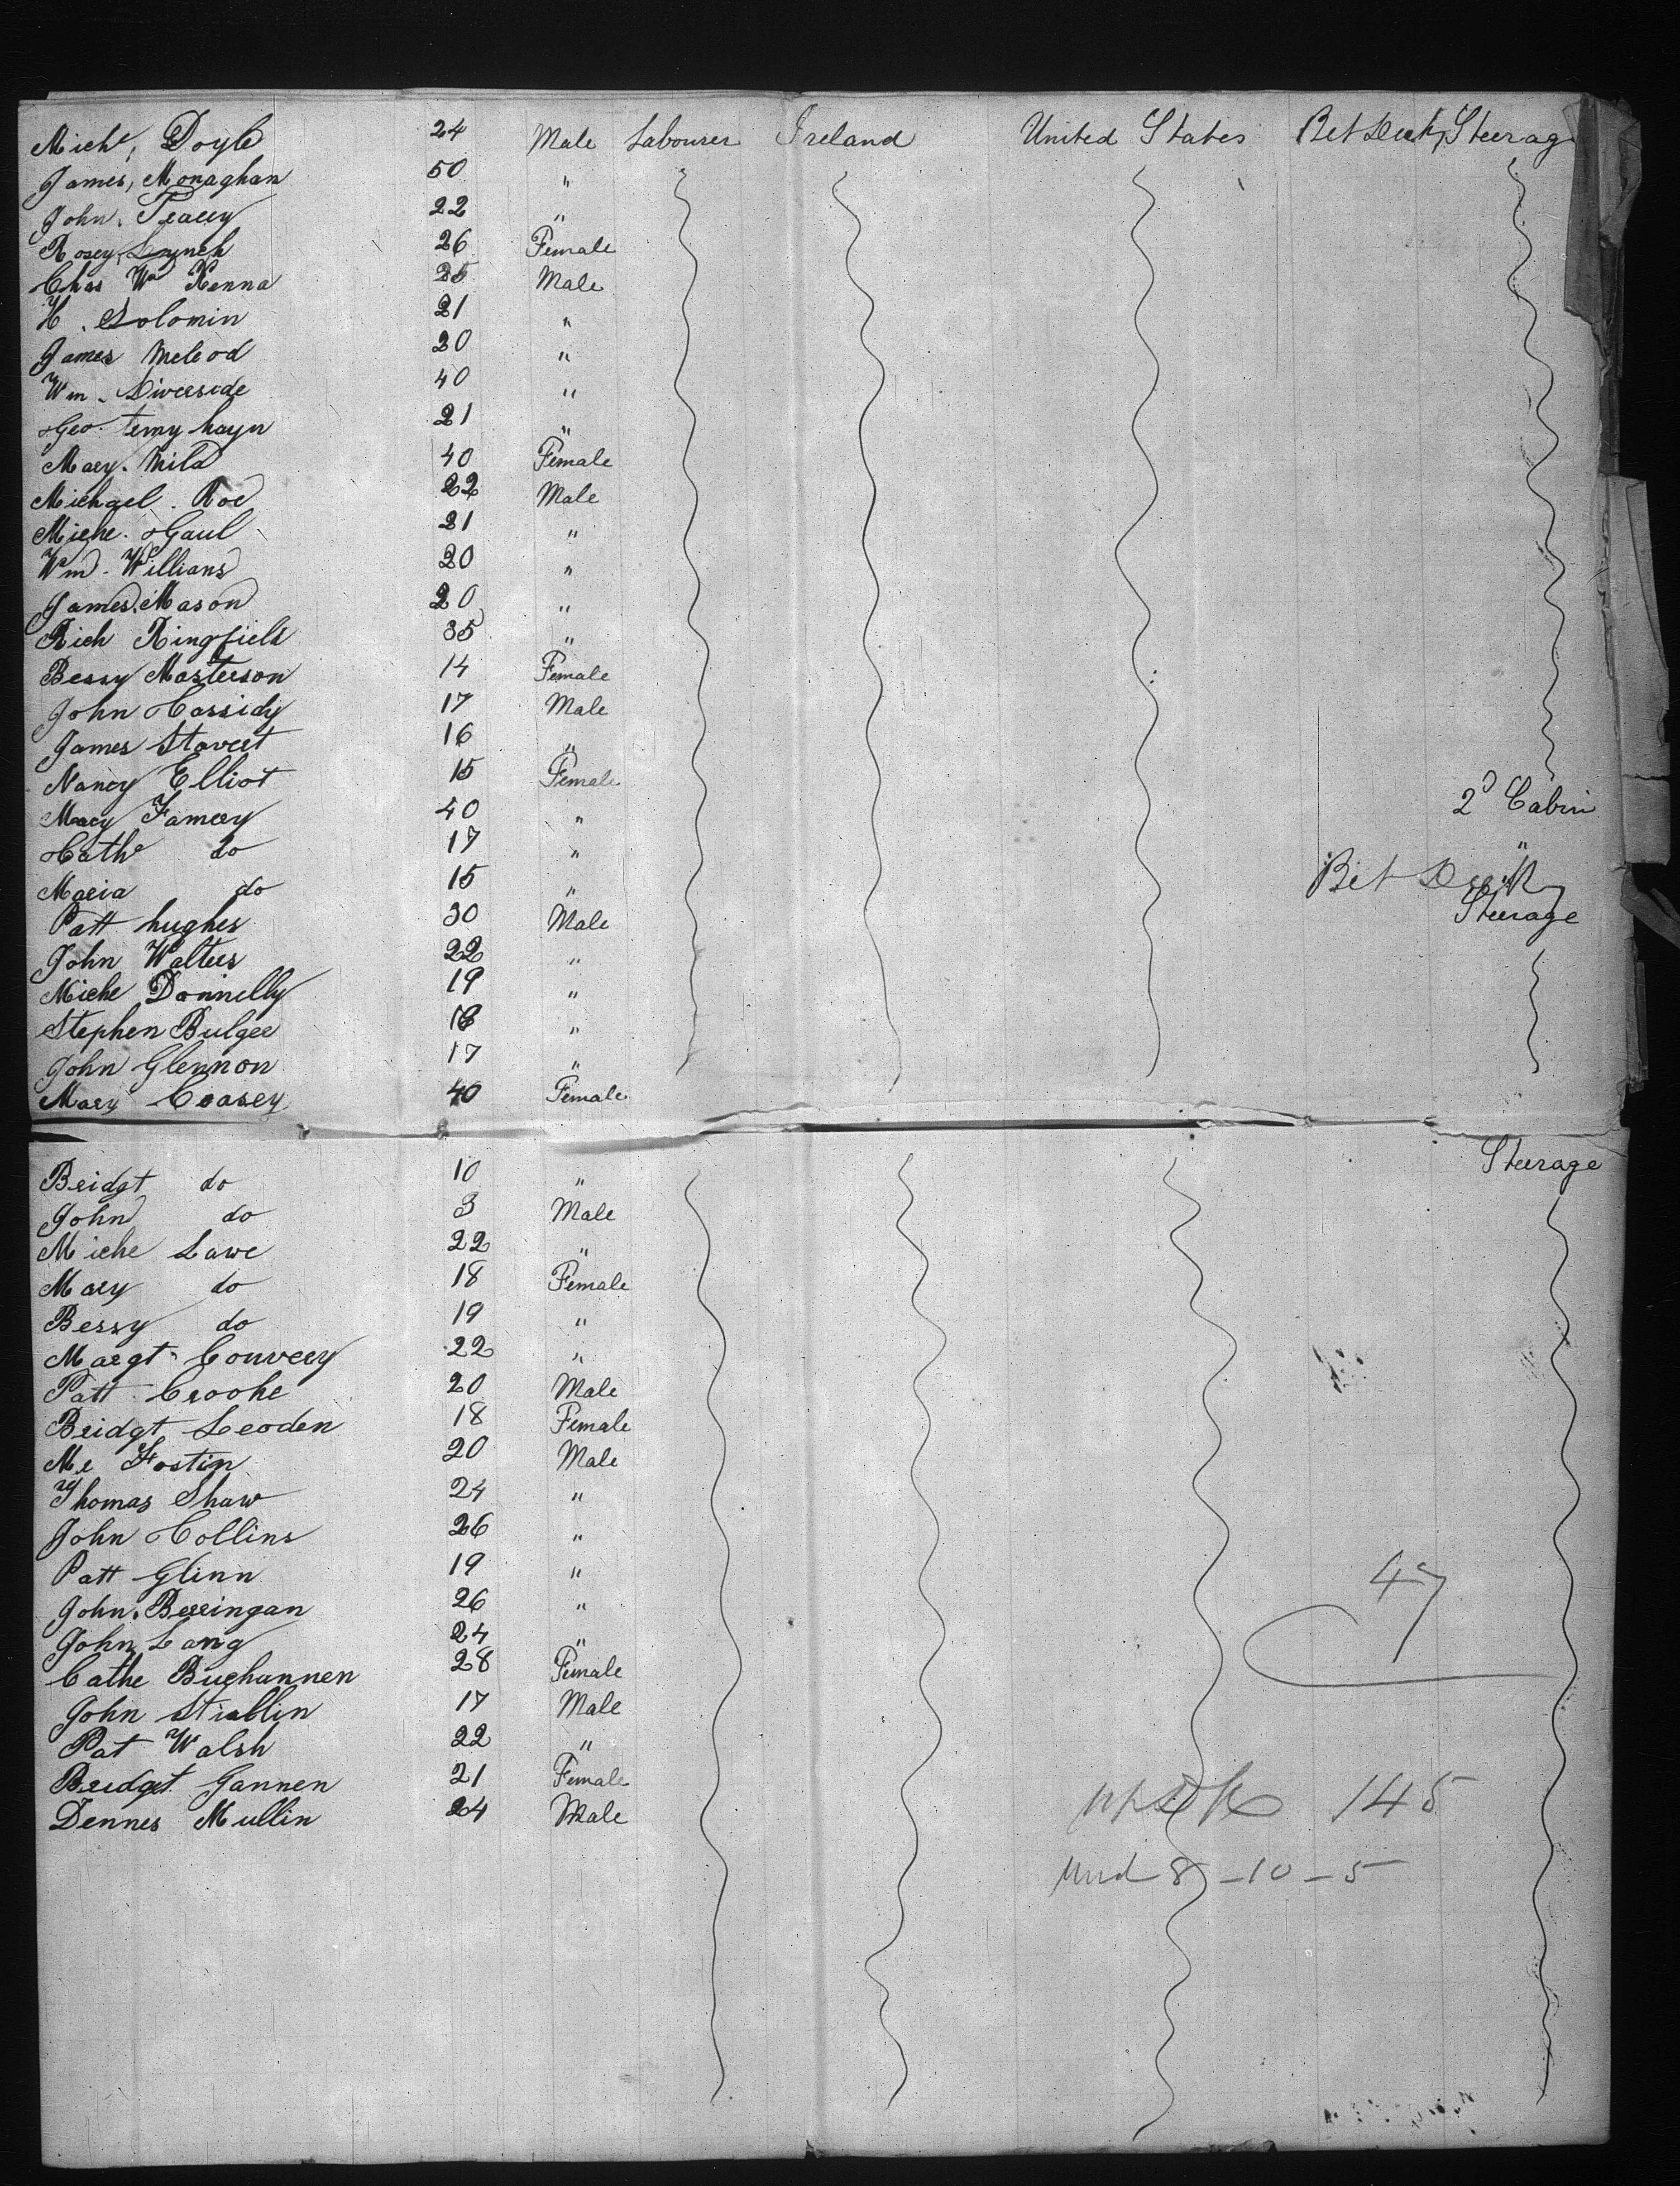 Miche, Doyle 24 Male Labourer Ireland United States Bet Deck, Steerage
James, Monaghan 50 "
John. Tracey 22 "
Rosey Lynch 26 Female
Chas Wm Kenna 25 Male
H. Solomin 21 "
James McLeod 20 "
Wm. Liverside 40 "
Geo. 21 "
Mary. Mila 40 Female
Michael. Roe 22 Male
Miche. Gaul 21 "
Wm. Willians 20 "
James. Mason 20 "
Rich Ringfield 35 "
Bessy Masterson 14 Female
John Cassidy 17 Male
James Stavert 16 "
Nancy Elliot 15 Female
Mary Famery 40 " 2d Cabin
Cathe do 17 " "
Maria do 15 " "
Patt hughes 30 Male Bet Deck Steerage
John Walters 22 "
Miche Donnelly 19 "
Stephen Bulger 18 "
John Glennon 17 "
Mary Creasey 40 Female
Bridgt do 10 " Steerage
John do 3 Male
Miche Lawe 22 "
Mary do 18 Female
Bessy do 19 "
Margt. Convery 22 "
Patt Crooke 20 Male
Bridgt Leoden 18 Female
Mr Fostin 20 Male
Thomas Shaw 24 "
John Collins 26 "
Patt Glinn 19 "
John. Berringan 26 "
John Lang 24 "
47
Cathe Buchannen 28 Female
John Stirblin 17 Male
Pat Walsh 22 "
Bridgt. Gannen 21 Female
Dennes Mullin 24 Male 145
und 8 - 10 - 5